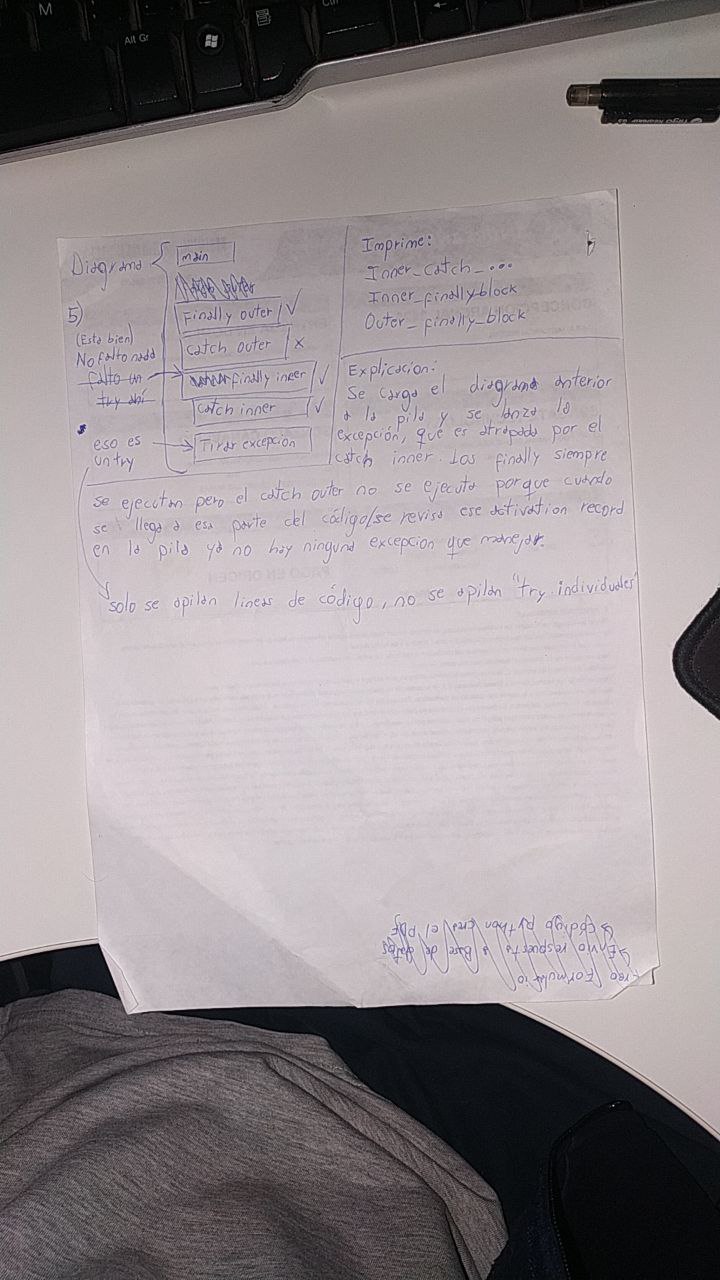 M
Alt Gr
Ctrl
Diagrama
main
5)
Finally outer
(Esta bien)
No falto nada
catch outer x
falto un
try ahí
finally inner
catch inner
eso es
un try
Tirar excepcion
Imprime:
Inner_catch_...
Inner_finallyblock
Outer_finally_block
Explicacion:
Se carga el diagrama anterior
a la pila y se lanza la
excepción, que es atrapada por el
catch inner. Los finally siempre
se ejecutan pero el catch outer no se ejecuta porque cuando
se llega a esa parte del código/se revisa ese activation record
en la pila ya no hay ninguna excepcion que manejar.
solo se apilan lineas de código, no se apilan "try individuales"
Creo Formulario
→Envio respuesta a Base de datos
→codigo python crea el PDF